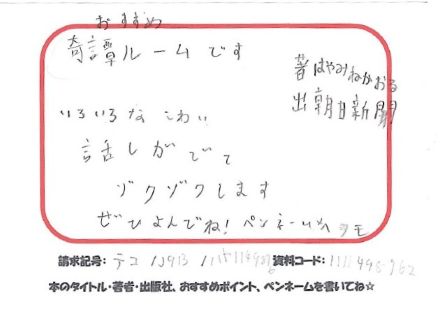 おすすめ
奇譚ルームです
著はやみねかおる
出朝日新聞
いろいろなこわい
話しがでて
ゾクゾクします
ぜひよんでね! ペンネーム
請求記号:
資料コード:
本のタイトル・著者・出版社、おすすめポイント、ペンネームを書いてね☆